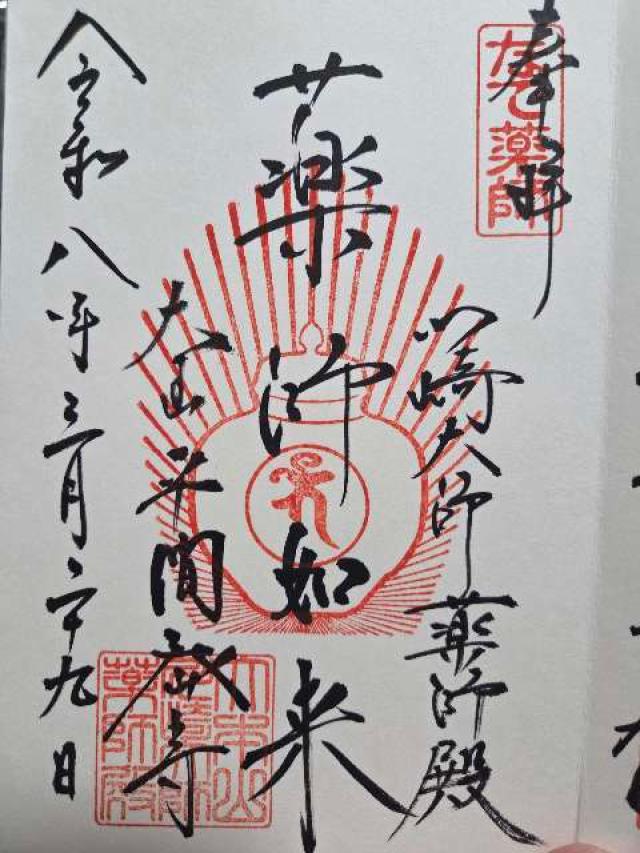 奉拝
なで薬師
川崎大師薬師殿
薬師如来
大山平間寺
大本山
川崎大師
薬師殿
令和八年三月二十九日